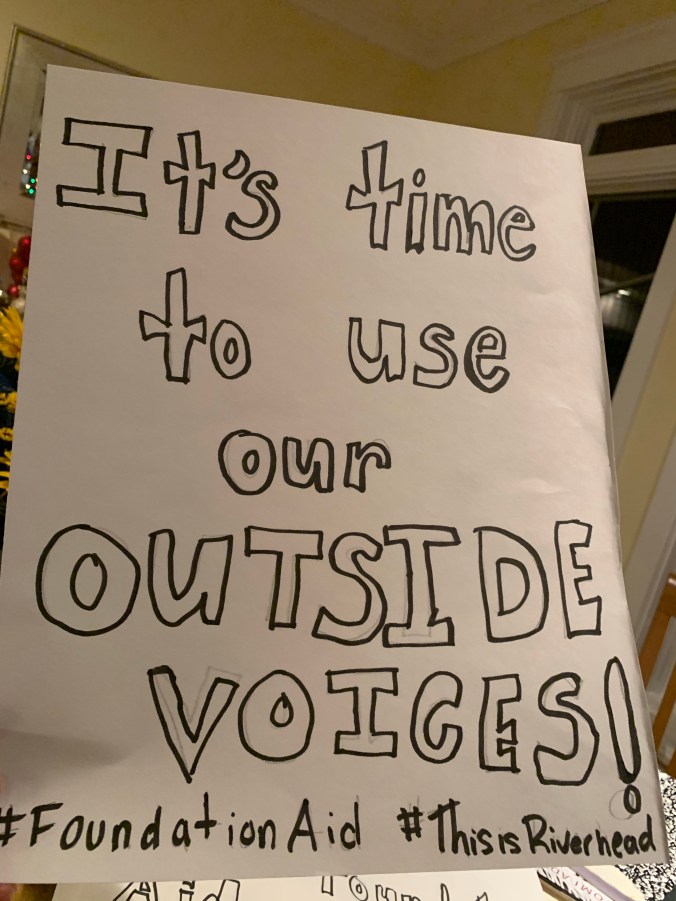 It's time
to use
our
OUTSIDE
VOICES!
#FoundationAid #ThisisRiverhead
Aid